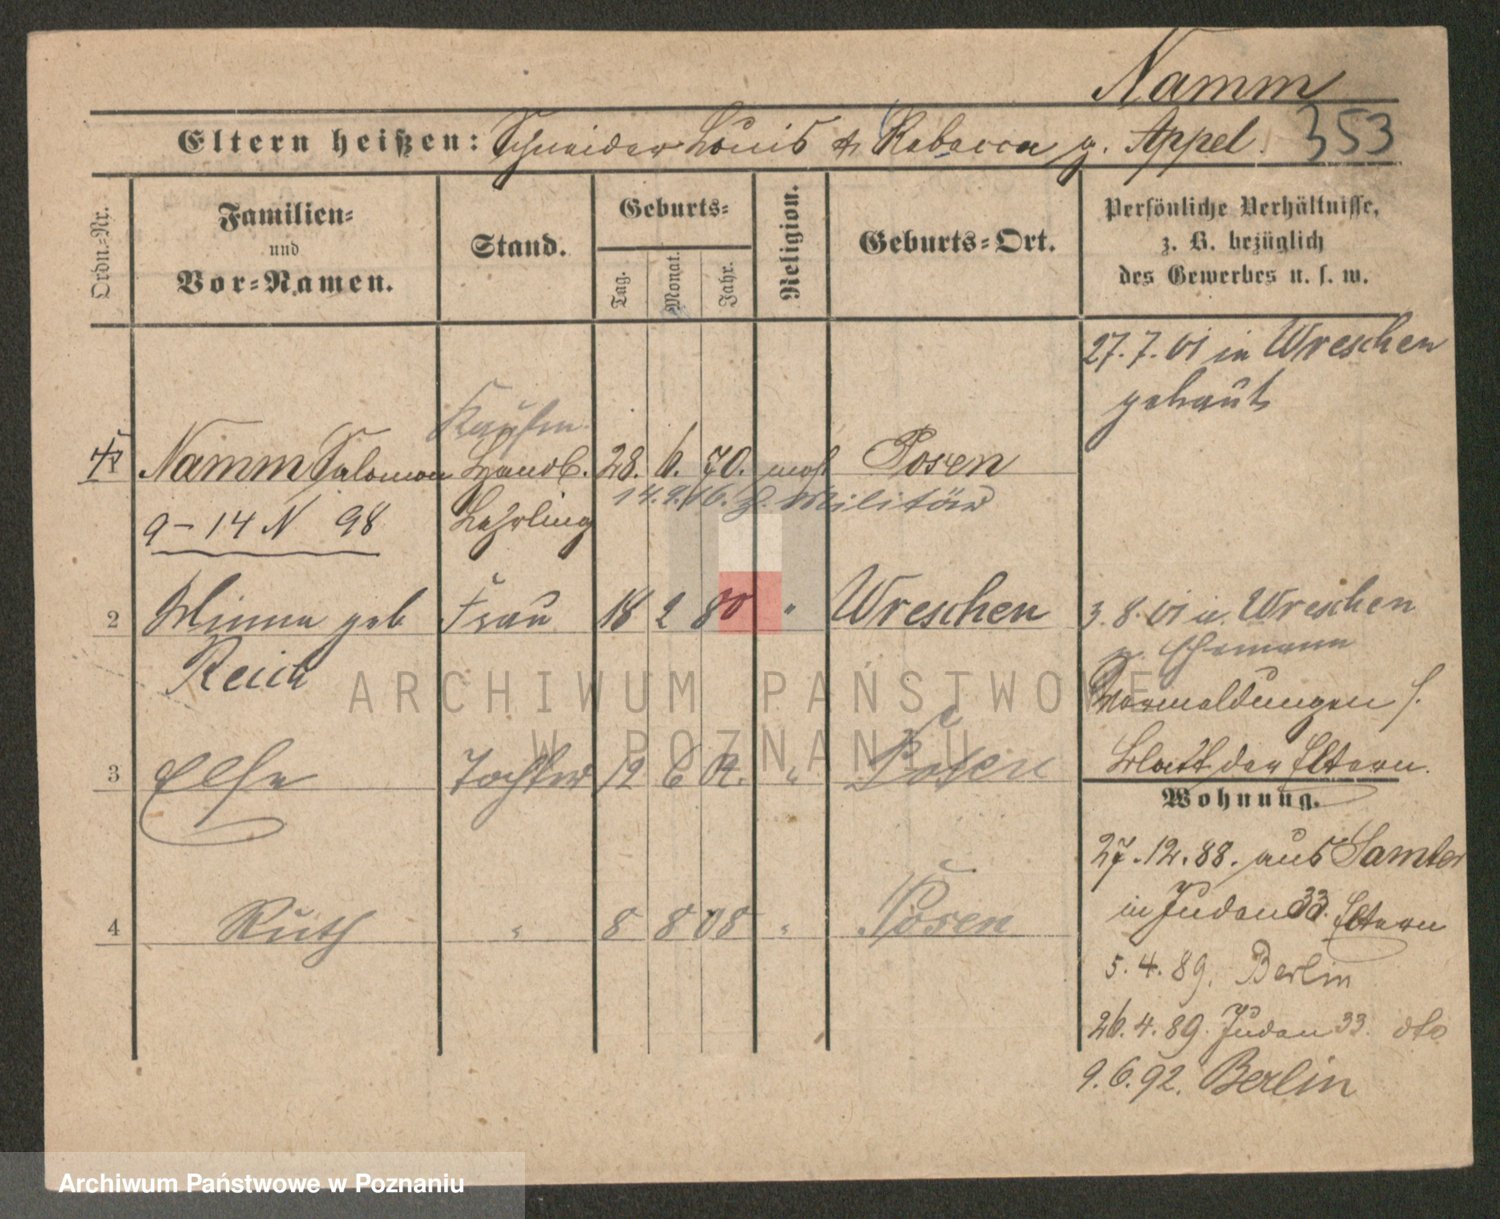 Namm
Eltern heißen: Schneider Louis & Rebecca g. Appel. 353
Ordn.=Nr.
Familien=
und
Vor=Namen.
Stand.
Geburts=
Tag. Monat. Jahr.
Religion.
Geburts=Ort.
Persönliche Verhältnisse,
z. B. bezüglich
des Gewerbes u. s. w.
27.7.01 in Wreschen
getraut
Kaufm.
Namm Salomon Handl. 28. 6. 70. mos Posen
14.9.16. z. Militär
9-14 N 98 Lehrling
2 Minna geb Frau 18 2 80 " Wreschen 3.8.01 v. Wreschen
Reich
z. Ehemann
Vormeldungen s.
Blatt der Eltern.
3 Else Tochter 12 6 02. " Posen
Wohnung.
27.12.88. aus Samter
in Juden 33. Eltern
4 Ruth " 8 8 08 " Posen
5.4.89. Berlin
26.4.89. Juden 33. dto
9.6.92. Berlin
ARCHIWUM PAŃSTWOWE
W POZNANIU
Archiwum Państwowe w Poznaniu